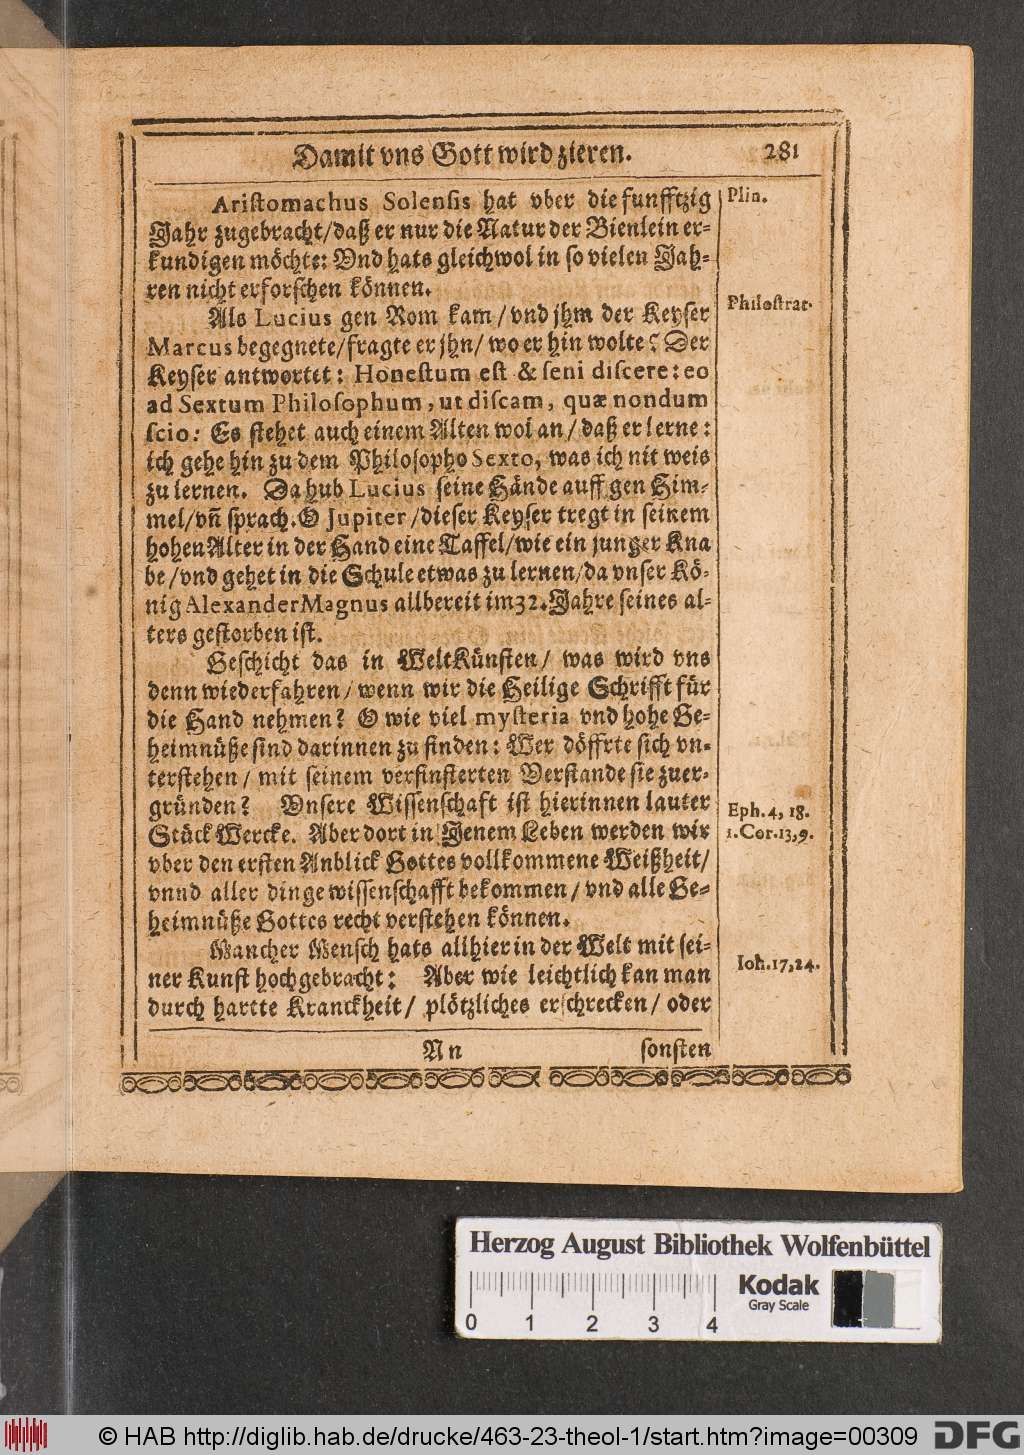 Damit vns Gott wird zieren. 281
Aristomachus Solensis hat vber die funfftzig
Jahr zugebracht/daß er nur die Natur der Bienlein er-
kundigen möchte: Vnd hats gleichwol in so vielen Jah-
ren nicht erforschen können.
Plin.
Als Lucius gen Rom kam/vnd jhm der Keyser
Marcus begegnete/fragte er jhn/wo er hin wolte? Der
Keyser antwortet: Honestum est & seni discere: eo
ad Sextum Philosophum, ut discam, quæ nondum
scio: Es stehet auch einem Alten wol an/daß er lerne:
ich gehe hin zu dem Philosopho Sexto, was ich nit weis
zu lernen. Da hub Lucius seine Hände auff gen Him-
mel/vñ sprach. O Jupiter/dieser Keyser tregt in seinem
hohen Alter in der Hand eine Taffel/wie ein junger Kna
be/vnd gehet in die Schule etwas zu lernen/da vnser Kö-
nig Alexander Magnus allbereit im 32. Jahre seines al-
ters gestorben ist.
Philostrat.
Geschicht das in WeltKünsten/ was wird vns
denn wiederfahren/wenn wir die Heilige Schrifft für
die Hand nehmen? O wie viel mysteria vnd hohe Ge-
heimnüße sind darinnen zu finden: Wer döffrte sich vn-
terstehen/ mit seinem verfinsterten Verstande sie zuer-
gründen? Vnsere Wissenschaft ist hierinnen lauter
Stück Wercke. Aber dort in Jenem Leben werden wir
vber den ersten Anblick Gottes vollkommene Weißheit/
vnnd aller dinge wissenschafft bekommen/vnd alle Ge-
heimnüße Gottes recht verstehen können.
Eph. 4, 18.
1. Cor. 13, 9.
Mancher Mensch hats allhier in der Welt mit sei-
ner Kunst hochgebracht: Aber wie leichtlich kan man
durch hartte Kranckheit/ plötzliches erschrecken/ oder
Ioh. 17, 24.
Nn sonsten
Herzog August Bibliothek Wolfenbüttel
0 1 2 3 4
Kodak
Gray Scale
© HAB http://diglib.hab.de/drucke/463-23-theol-1/start.htm?image=00309
DFG